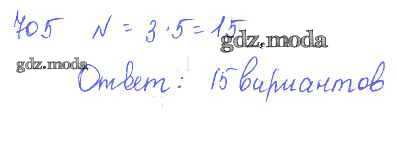 705 N = 3 · 5 = 15
gdz.moda
gdz.moda
Ответ: 15 вириантов